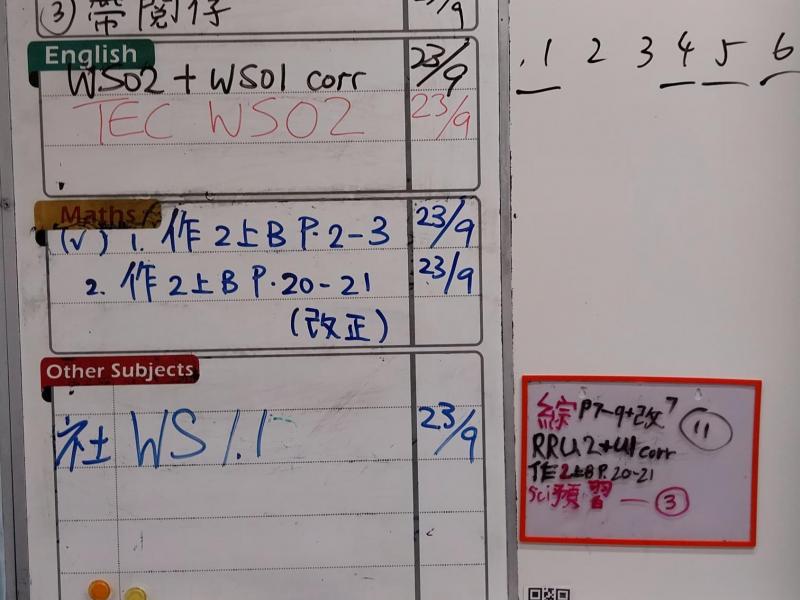 ③ 帶閱仔 23/9
English
WS02 + WS01 corr 23/9
TEC WS02 23/9
Maths
(√) 1. 作2上B P.2-3 23/9
2. 作2上B P.20-21 23/9
(改正)
Other Subjects
社 WS 1.1 23/9
.1 2 3 4 5 6
綜 P7-9+改 7 ⑪
RRU2+U1 corr
作2上B P.20-21
Sci預習 — ③